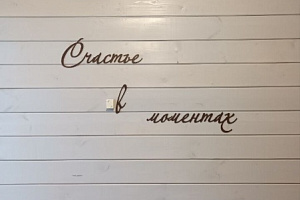 Счастье
в
моментах